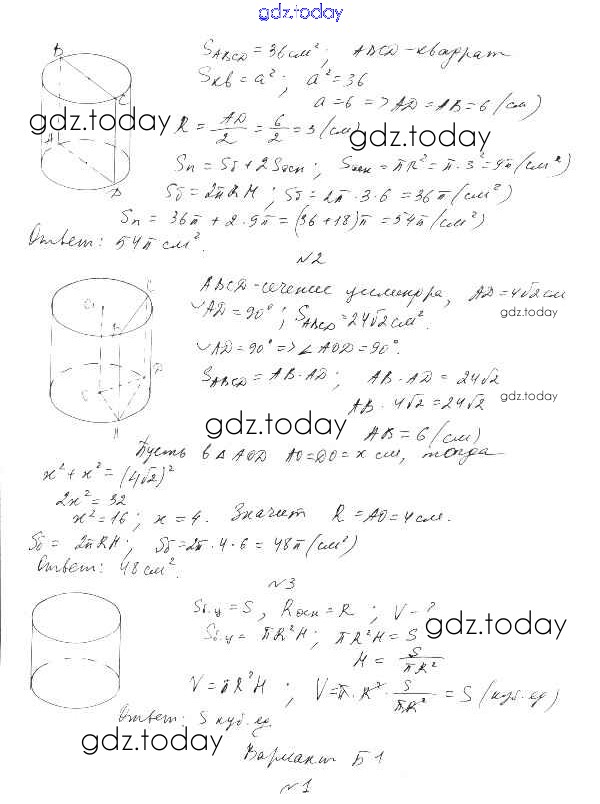 gdz.today
S_ABCD = 36 см²; ABCD - квадрат
Sкв = a²; a² = 36
a = 6 => AD = AB = 6 (см)
gdz.today
R = AD/2 = 6/2 = 3 (см)
gdz.today
Sп = Sб + 2Sосн; Sосн = πR² = π·3² = 9π (см²)
Sб = 2πRH; Sб = 2π·3·6 = 36π (см²)
Sп = 36π + 2·9π = (36+18)π = 54π (см²)
Ответ: 54π см².
№2
ABCD - сечение цилиндра, AD = 4√2 см
◡AD = 90°; S_ABCD = 24√2 см².
gdz.today
◡AD = 90° => ∠AOD = 90°.
S_ABCD = AB·AD; AB·AD = 24√2
AB·4√2 = 24√2
gdz.today
gdz.today
AB = 6 (см)
Пусть в △AOD AO = DO = x см, тогда
x² + x² = (4√2)²
2x² = 32
x² = 16; x = 4. Значит R = AO = 4 см.
Sб = 2πRH; Sб = 2π·4·6 = 48π (см²)
Ответ: 48 см².
№3
Sб.у = S, Rосн = R; V - ?
gdz.today
Sб.у = πR²H; πR²H = S
H = S/πR²
V = πR²H; V = π·R²·S/πR² = S (куб.ед)
Ответ: S куб.ед.
gdz.today
Вариант Б1
№1